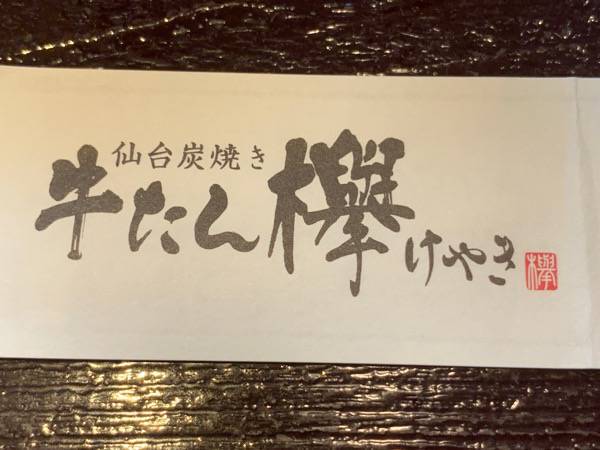 仙台炭焼き
牛たん欅けやき
欅